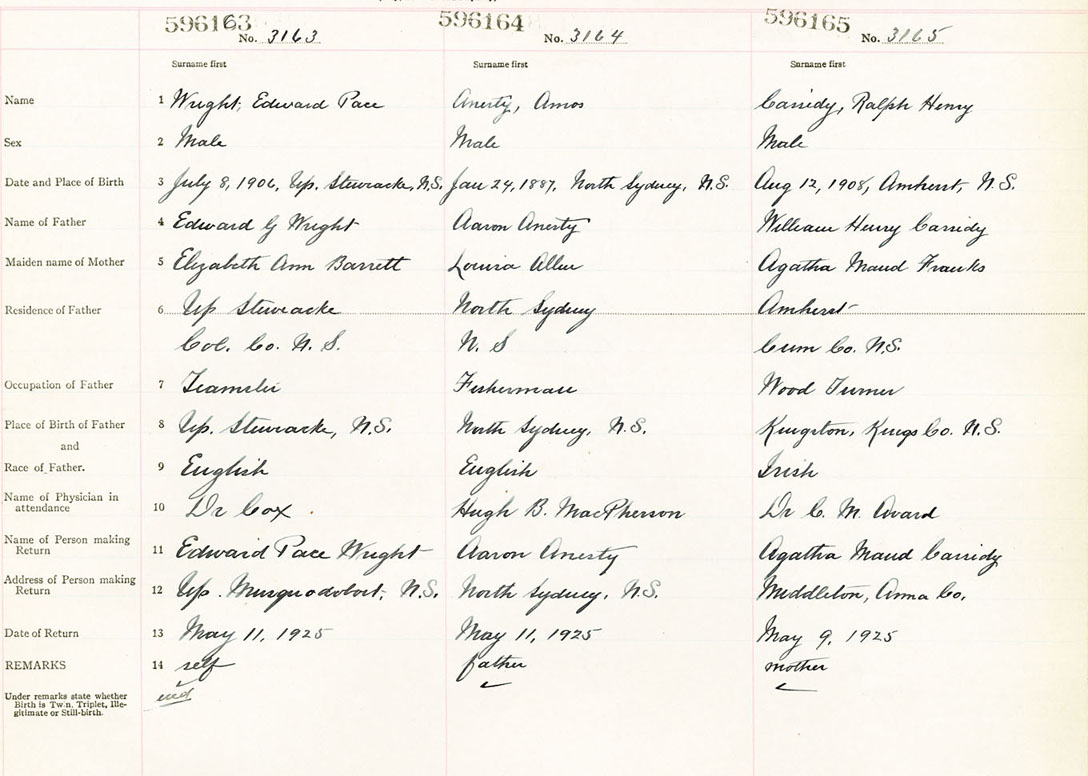 596163 596164 596165
No. 3163 No. 3164 No. 3165
Surname first Surname first Surname first
Name 1 Wright, Edward Pace Anesty, Amos Cassidy, Ralph Henry
Sex 2 Male Male Male
Date and Place of Birth 3 July 8, 1906, Up. Stewiacke, N.S. Jan 24, 1887, North Sydney, N.S. Aug 12, 1908, Amherst, N.S.
Name of Father 4 Edward G Wright Aaron Anesty William Henry Cassidy
Maiden name of Mother 5 Elizabeth Ann Barrett Louisa Allen Agatha Maud Franks
Residence of Father 6 Up Stewiacke North Sydney Amherst
Col. Co. N. S. N. S Cum Co. N.S.
Occupation of Father 7 Teamster Fisherman Wood Turner
Place of Birth of Father 8 Up. Stewiacke, N.S. North Sydney, N.S. Kingston, Kings Co. N.S.
and
Race of Father. 9 English English Irish
Name of Physician in
attendance 10 Dr Cox Hugh B. MacPherson Dr C. M. Avard
Name of Person making
Return 11 Edward Pace Wright Aaron Anesty Agatha Maud Cassidy
Address of Person making
Return 12 Up. Musquodoboit, N.S. North Sydney, N.S. Middleton, Anna Co.
Date of Return 13 May 11, 1925 May 11, 1925 May 9, 1925
REMARKS 14 self father mother
Under remarks state whether
Birth is Twin, Triplet, Ille-
gitimate or Still-birth.